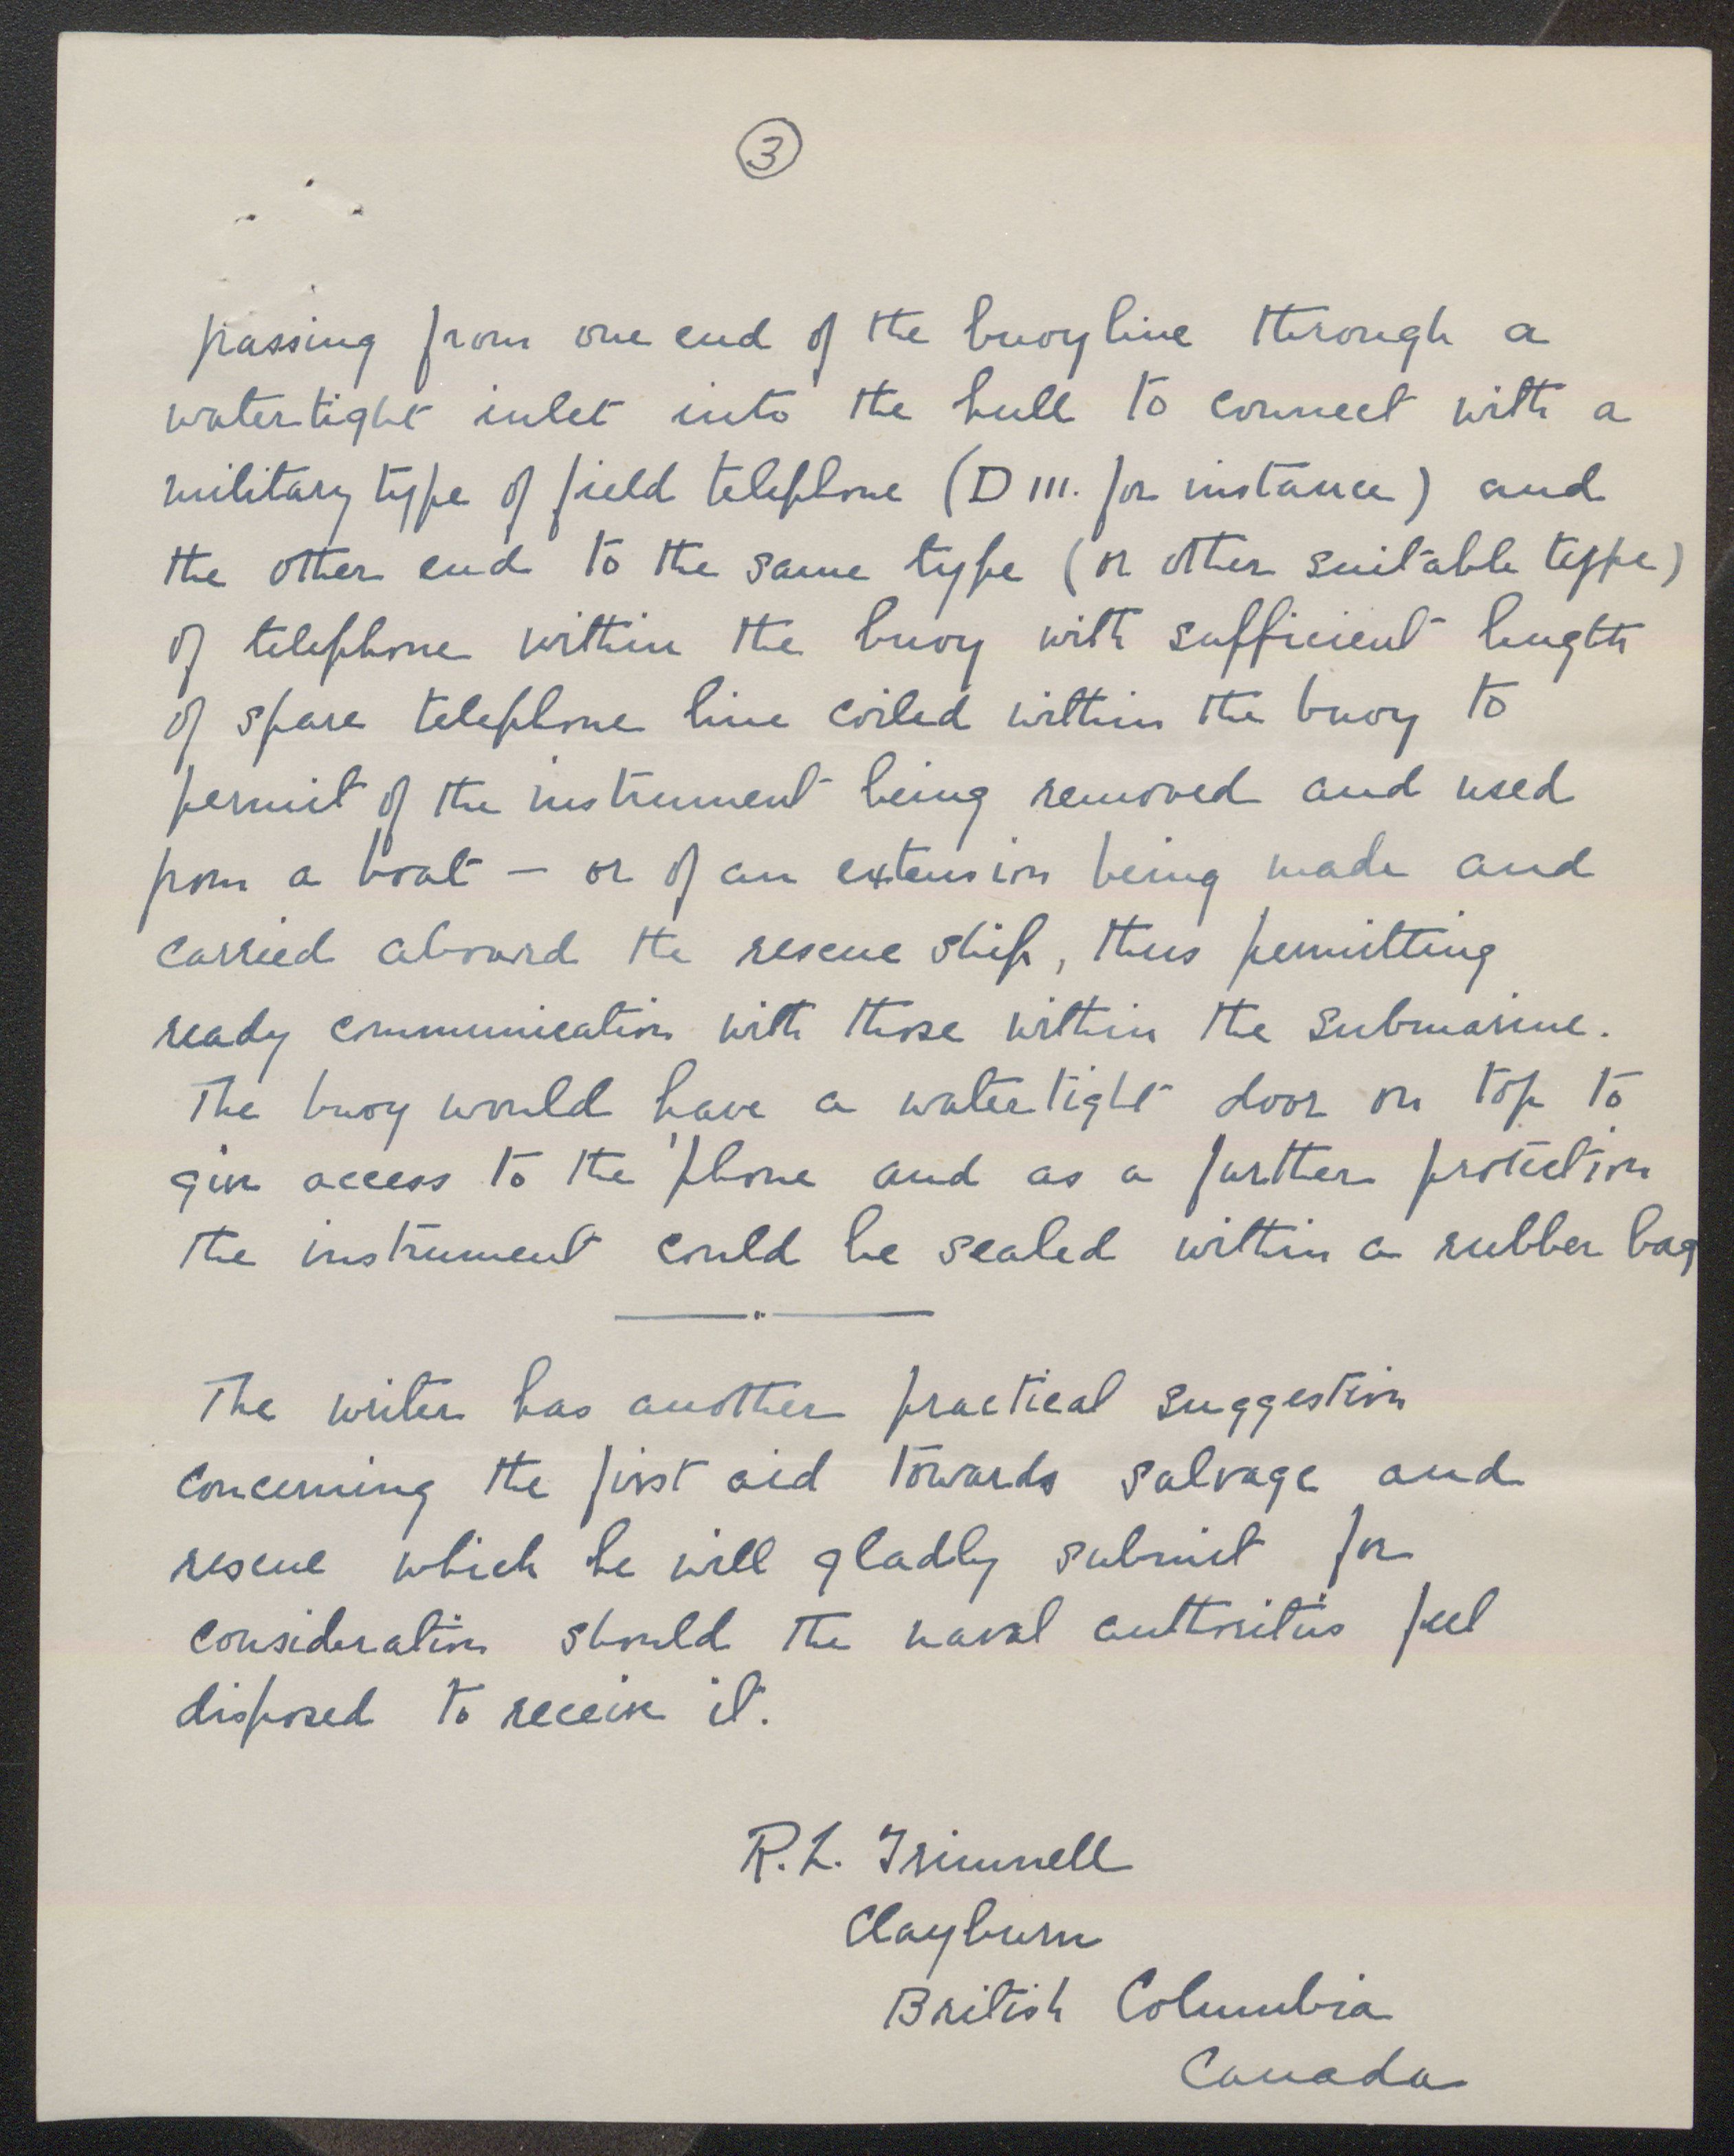 3
passing from one end of the buoy line through a
watertight inlet into the hull to connect with a
military type of field telephone (D III. for instance) and
the other end to the same type (or other suitable type)
of telephone within the buoy with sufficient length
of spare telephone line coiled within the buoy to
permit of the instrument being removed and used
from a boat — or of an extension being made and
carried aboard the rescue ship, thus permitting
ready communication with those within the submarine.
The buoy would have a watertight door on top to
give access to the 'phone and as a further protection
the instrument could be sealed within a rubber bag
The writer has another practical suggestion
concerning the first aid towards salvage and
rescue which he will gladly submit for
consideration should the naval authorities feel
disposed to receive it.
R.L. Trimnell
Clayburn
British Columbia
Canada